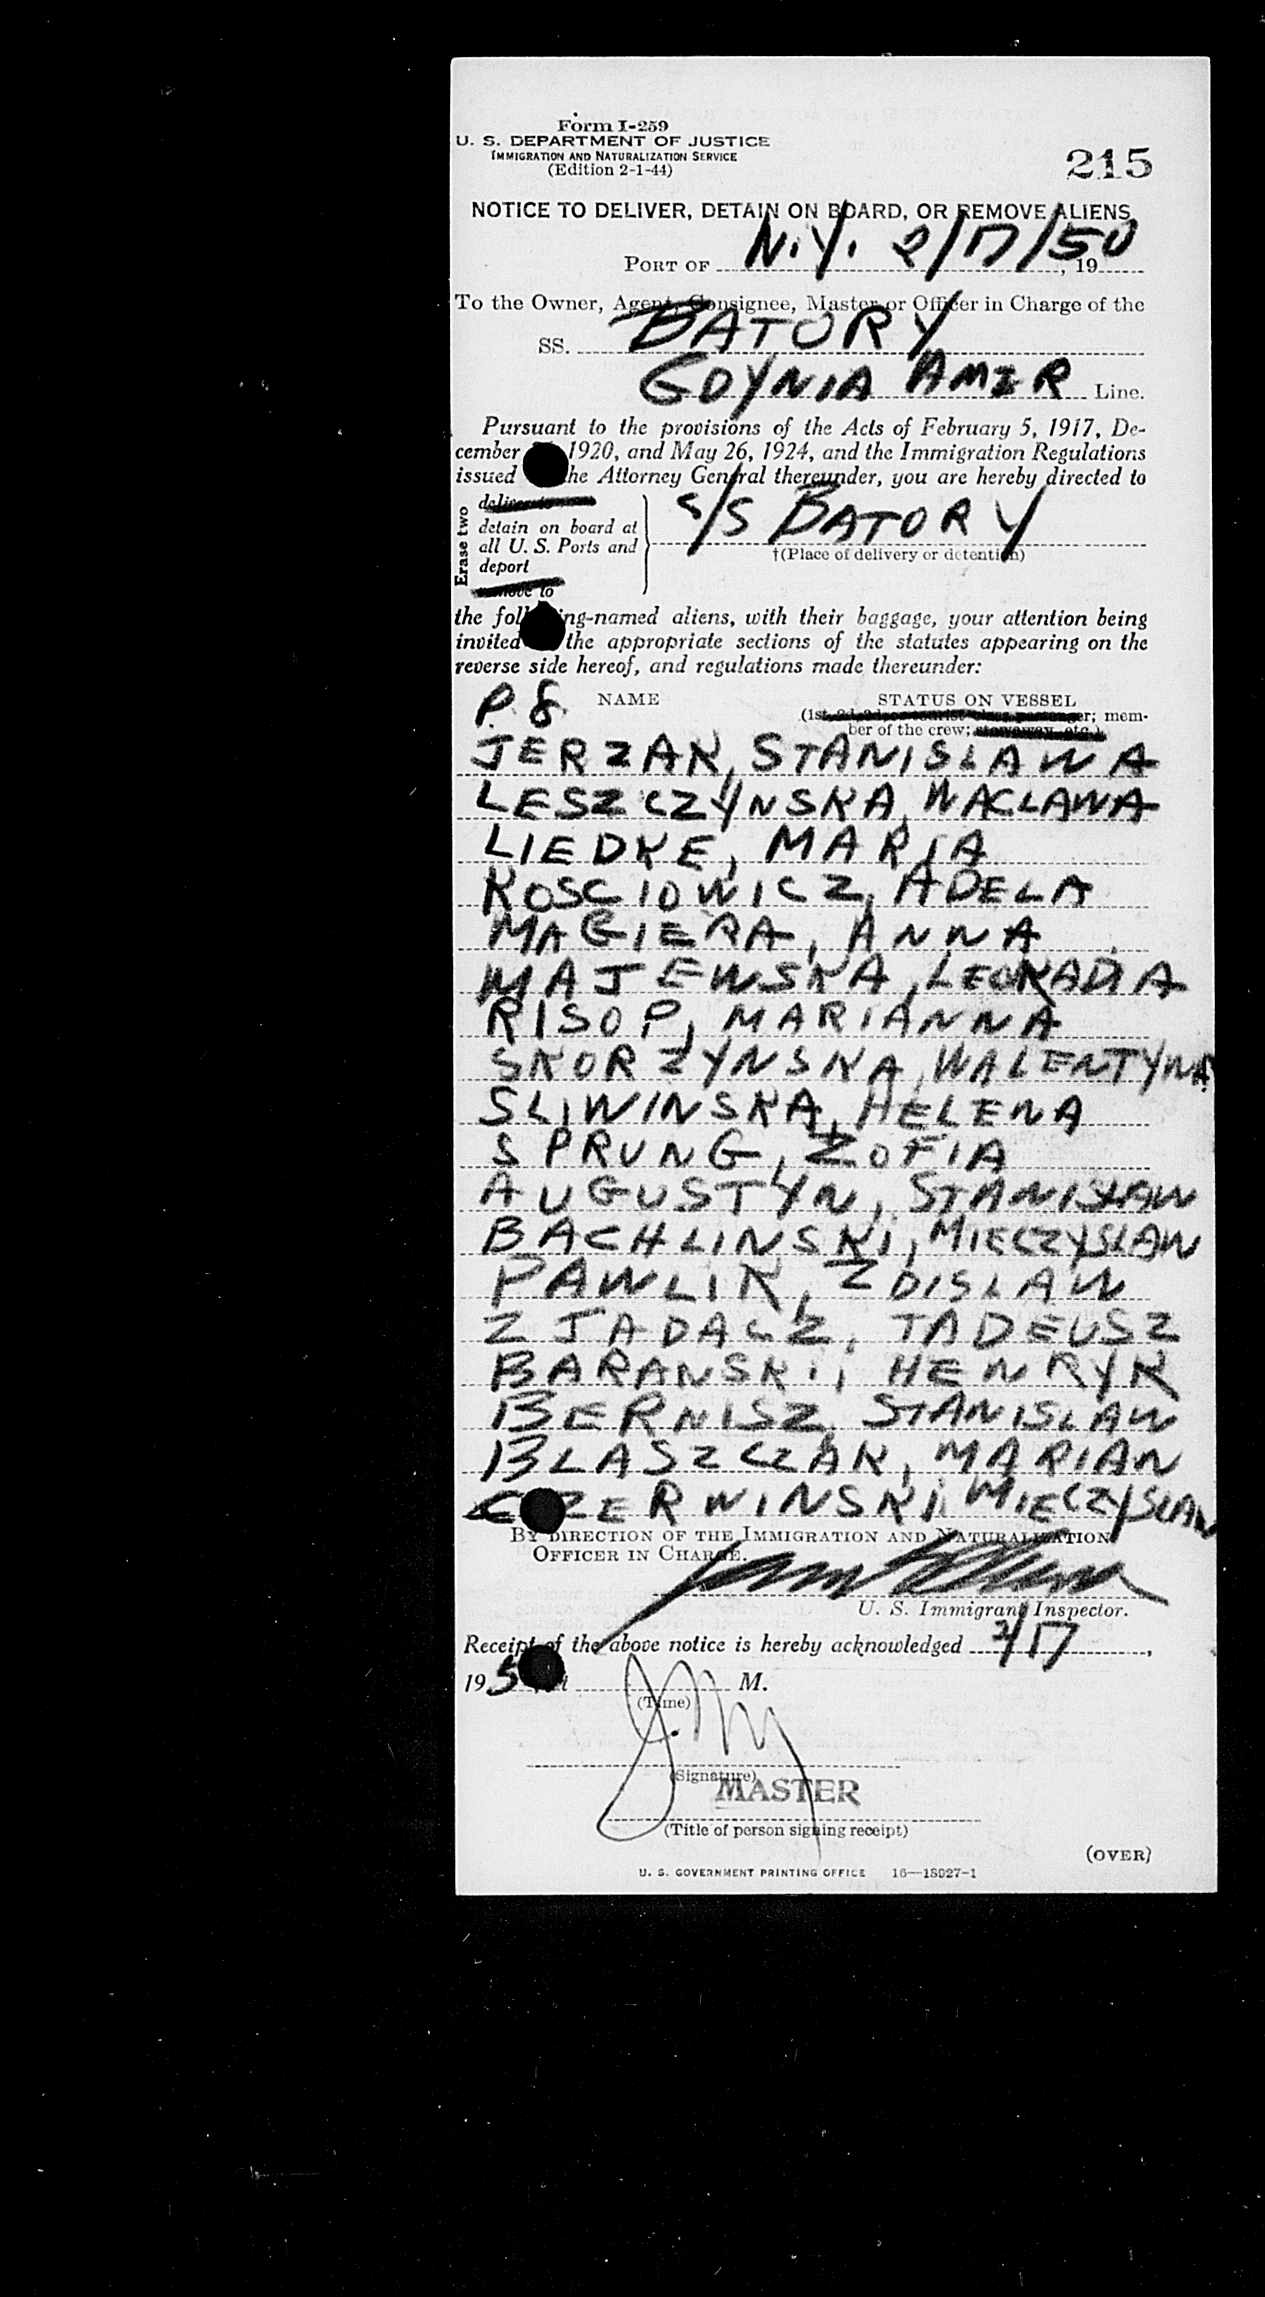 Form I-259
U. S. DEPARTMENT OF JUSTICE
IMMIGRATION AND NATURALIZATION SERVICE
(Edition 2-1-44)
215
NOTICE TO DELIVER, DETAIN ON BOARD, OR REMOVE ALIENS
PORT OF N.Y. 2/17/50, 19
To the Owner, Agent, Consignee, Master or Officer in Charge of the
SS. BATORY
GDYNIA AMER Line.
Pursuant to the provisions of the Acts of February 5, 1917, De-
cember 1920, and May 26, 1924, and the Immigration Regulations
issued the Attorney General thereunder, you are hereby directed to
Erase two
deliver to
detain on board at
all U. S. Ports and
deport
remove to
S/S BATORY
†(Place of delivery or detention)
the following-named aliens, with their baggage, your attention being
invited the appropriate sections of the statutes appearing on the
reverse side hereof, and regulations made thereunder:
P. 8 NAME STATUS ON VESSEL
(1st, 2d, 3d, or tourist class passenger; mem-
ber of the crew; stowaway, etc.)
JERZAK, STANISLAWA
LESZCZYNSKA, WACLAWA
LIEDKE, MARIA
KOSCIOWICZ, ADELA
MAGIERA, ANNA
MAJEWSKA, LEOKADIA
RISOP, MARIANNA
SKORZYNSKA, WALENTYNA
SLIWINSKA, HELENA
SPRUNG, ZOFIA
AUGUSTYN, STANISLAW
BACHLINSKI, MIECZYSLAW
PAWLIK, ZDISLAW
ZJADACZ, TADEUSZ
BARANSKI, HENRYK
BERNISZ, STANISLAW
BLASZCZAK, MARIAN
CZERWINSKI, MIECZYSLAW
BY DIRECTION OF THE IMMIGRATION AND NATURALIZATION
OFFICER IN CHARGE.
U. S. Immigrant Inspector.
Receipt of the above notice is hereby acknowledged 2/17,
195 M.
(Time)
(Signature)
MASTER
(Title of person signing receipt)
(OVER)
U. S. GOVERNMENT PRINTING OFFICE 16—18027-1